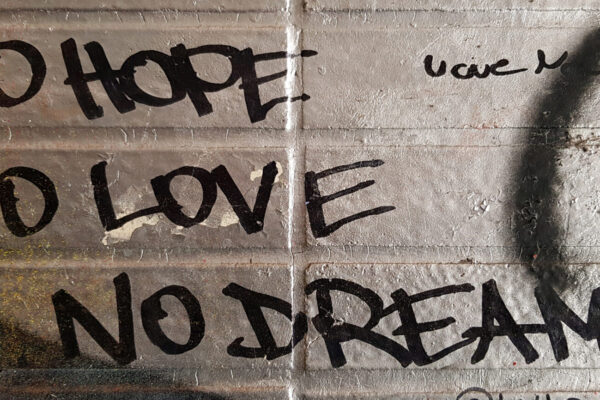 O HOPE
O LOVE
NO DREAM